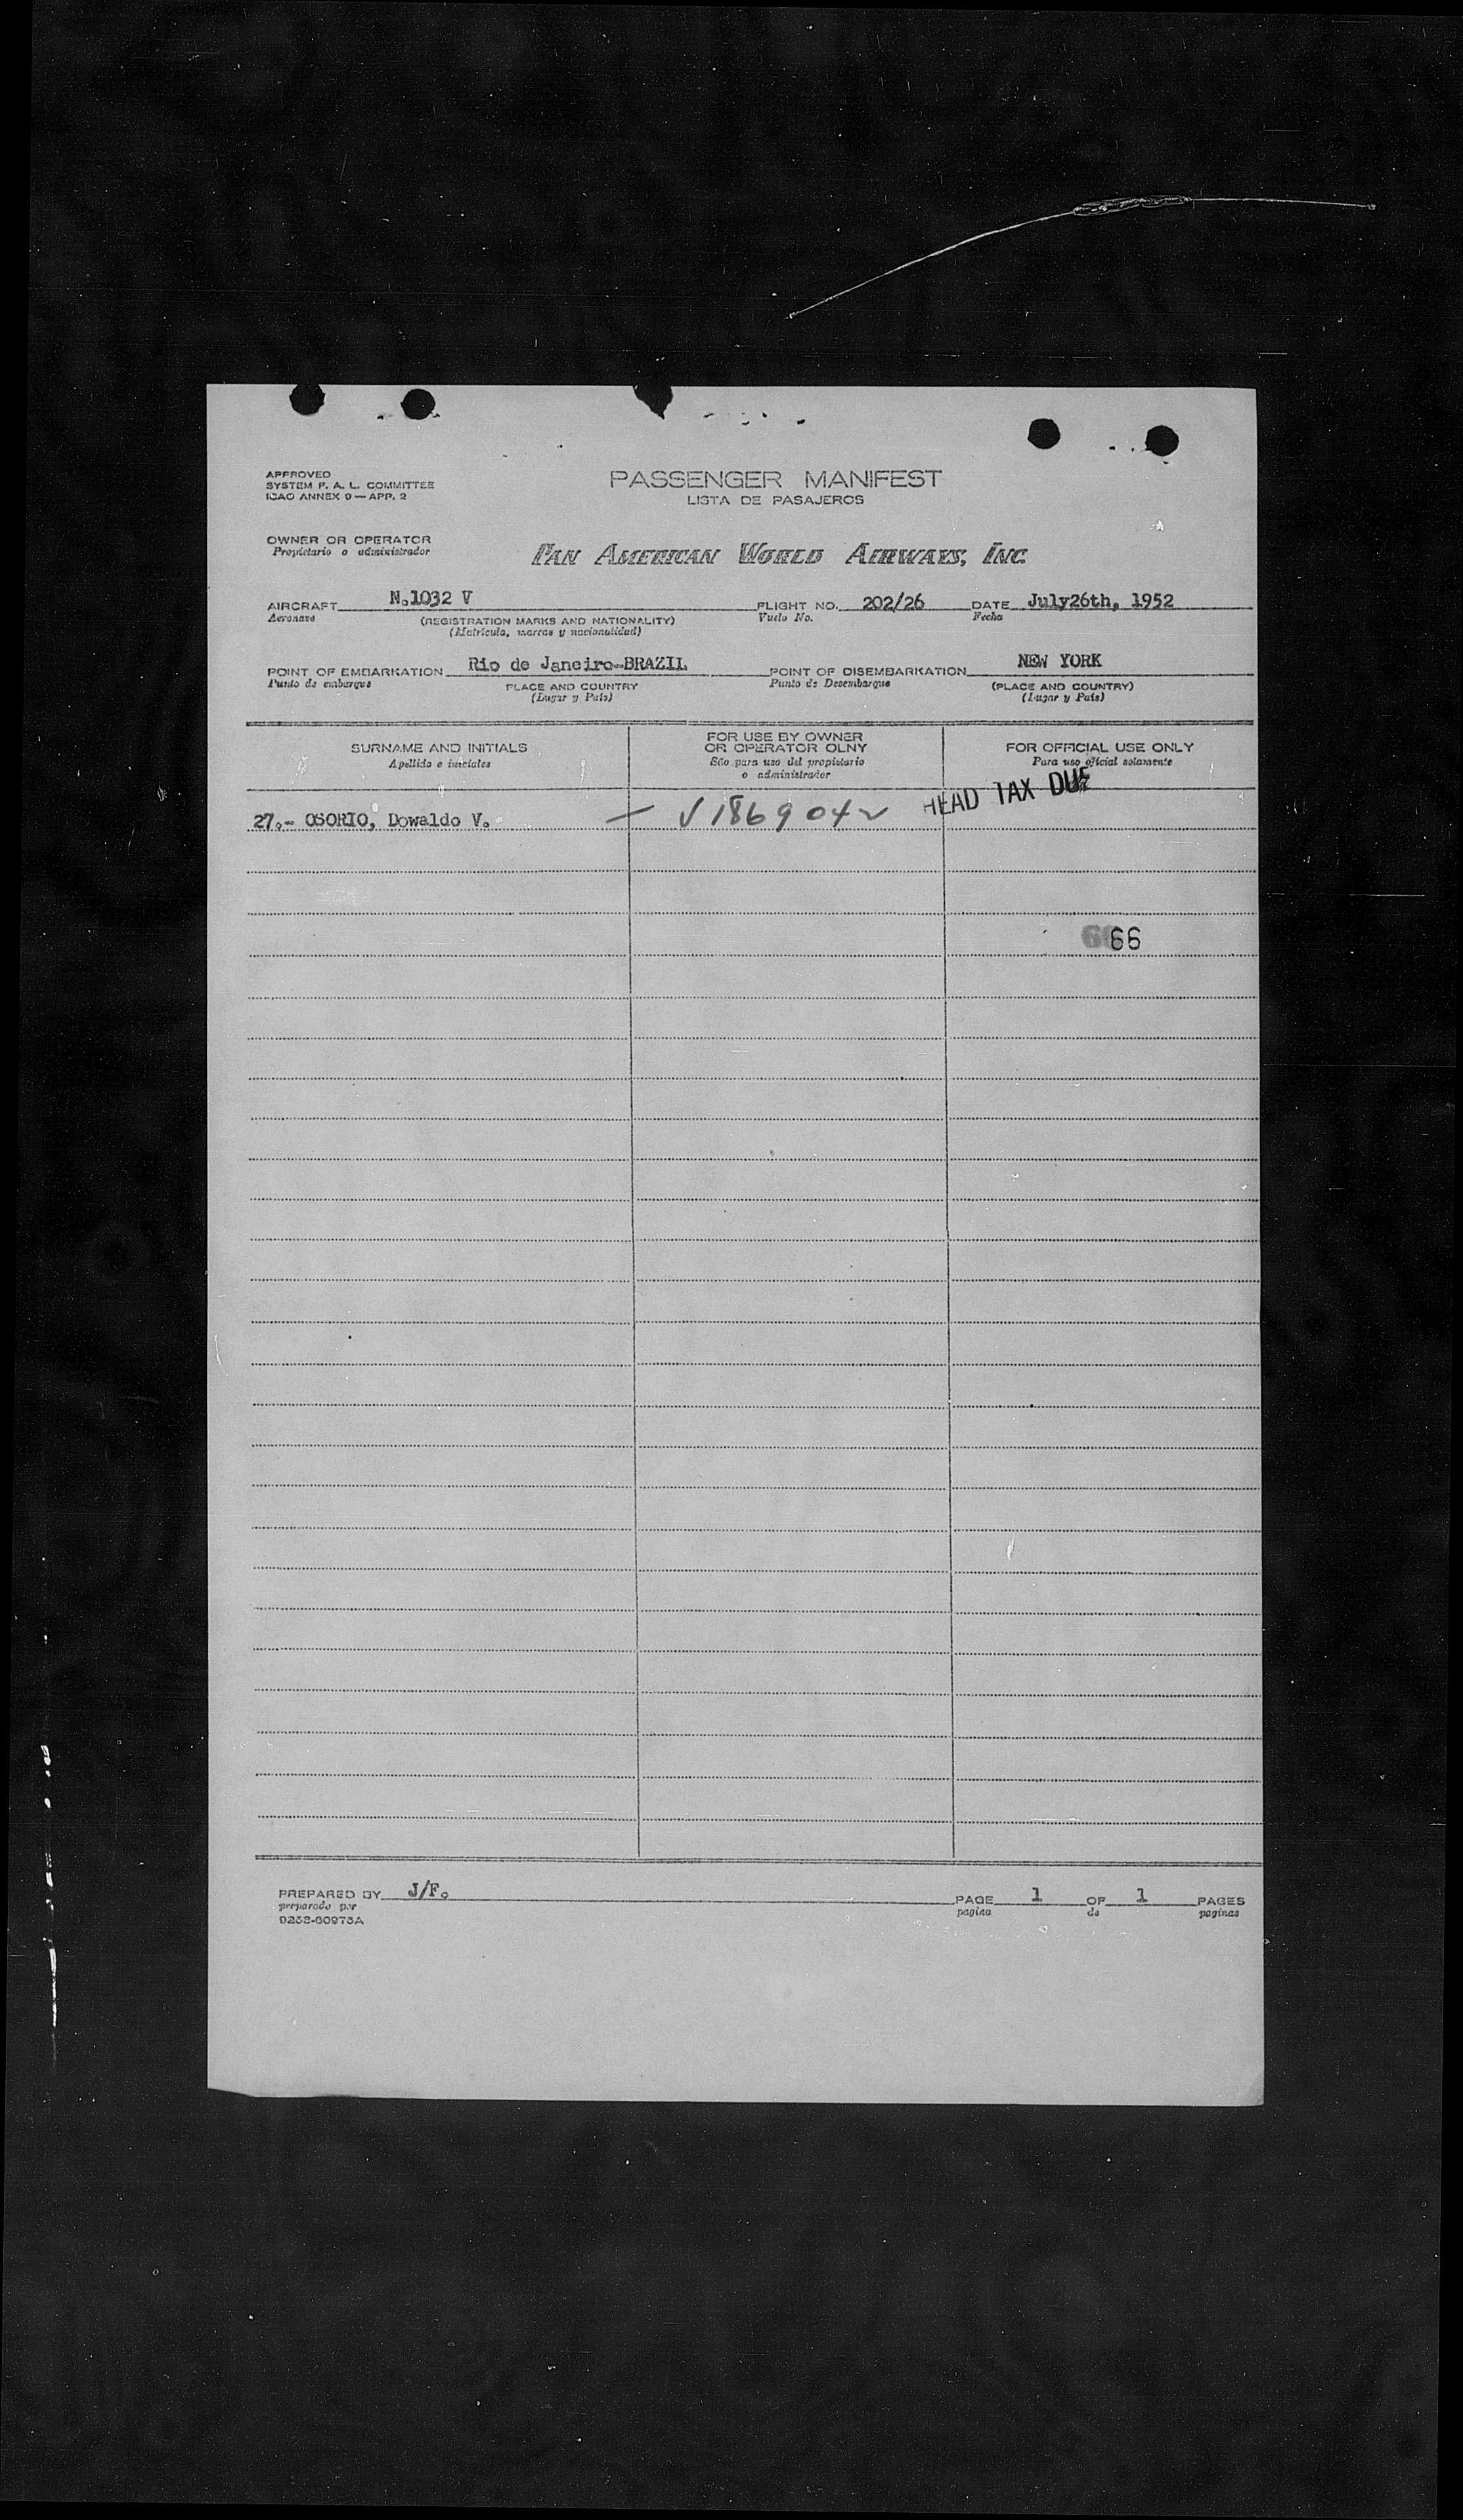 APPROVED
SYSTEM F. A. L. COMMITTEE
ICAO ANNEX 9 — APP. 2
PASSENGER MANIFEST
LISTA DE PASAJEROS
OWNER OR OPERATOR
Propietario o administrador
PAN AMERICAN WORLD AIRWAYS, INC.
AIRCRAFT N.1032 V FLIGHT NO. 202/26 DATE July26th, 1952
Aeronave (REGISTRATION MARKS AND NATIONALITY) Vuelo No. Fecha
(Matricula, marcas y nacionalidad)
POINT OF EMBARKATION Rio de Janeiro-BRAZIL POINT OF DISEMBARKATION NEW YORK
Punto de embarque PLACE AND COUNTRY Punto de Desembarque (PLACE AND COUNTRY)
(Lugar y Pais) (Lugar y Pais)
SURNAME AND INITIALS
Apellido e iniciales
FOR USE BY OWNER
OR OPERATOR OLNY
Sõo para uso del propietario
o administrador
FOR OFFICIAL USE ONLY
Para uso oficial solamente
HEAD TAX DUE
27.- OSORIO, Dowaldo V. — V 1869042
66
PREPARED BY J/F. PAGE 1 OF 1 PAGES
preparado por pagina de paginas
0252-60975A